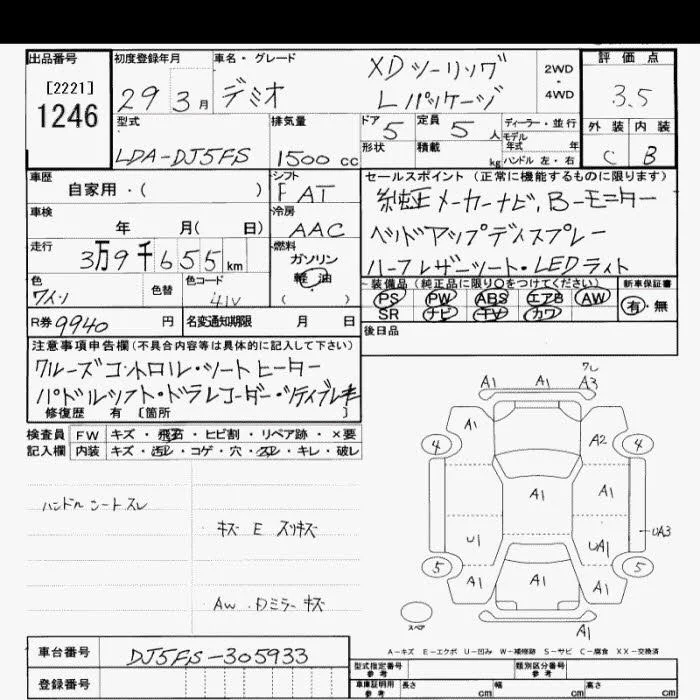 出品番号
[2221]
1246
初度登録年月
29 3月
車名・グレード
デミオ
XDツーリング
Lパッケージ
2WD
・
4WD
評価点
3.5
外装 内装
C B
型式
LDA-DJ5FS
排気量
1500cc
ドア 5
定員 5人
形状
積載 kg
ディーラー・並行
モデル年式 年
ハンドル 左・右
車歴
自家用・( )
シフト
FAT
車検
年 月( 日)
冷房
AAC
走行
3万9千655km
燃料
ガソリン
軽油
( )
色
ワイン
色替
色コード
41V
R券 9940円
名変通知期限 月 日
セールスポイント(正常に機能するものに限ります)
純正メーカーナビ、B-モニター
ヘッドアップディスプレー
ハーフレザーシート・LEDライト
装備品(純正品に限り○をつけてください)
PS PW ABS エアB AW
SR ナビ TV カワ
新車保証書
有・無
後日品
注意事項申告欄(不具合内容等は具体的に記入して下さい)
クルーズコントロル・シートヒーター
パドルシフト・ドラレコーダー・
修復歴 有 [箇所 ]
検査員 FW キズ・飛石・ヒビ割・リペア跡・×要
記入欄 内装 キズ・汚レ・コゲ・穴・スレ・キレ・破レ
ハンドル シートスレ
キズ E スリキズ
AW・Dミラーキズ
ワレ
A1 A1 A3
A1
4 A2 4
A1 A1
UA3
U1 UA1
5 A1 A1 A1 5
A1
スペア
A-キズ E-エクボ U-凹み W-補修跡 S-サビ C-腐食 XX-交換済
車台番号
DJ5FS-305933
登録番号
型式指定番号
参考
類別区分番号
参考
車庫証明用
参考
長さ cm
幅 cm
高さ cm